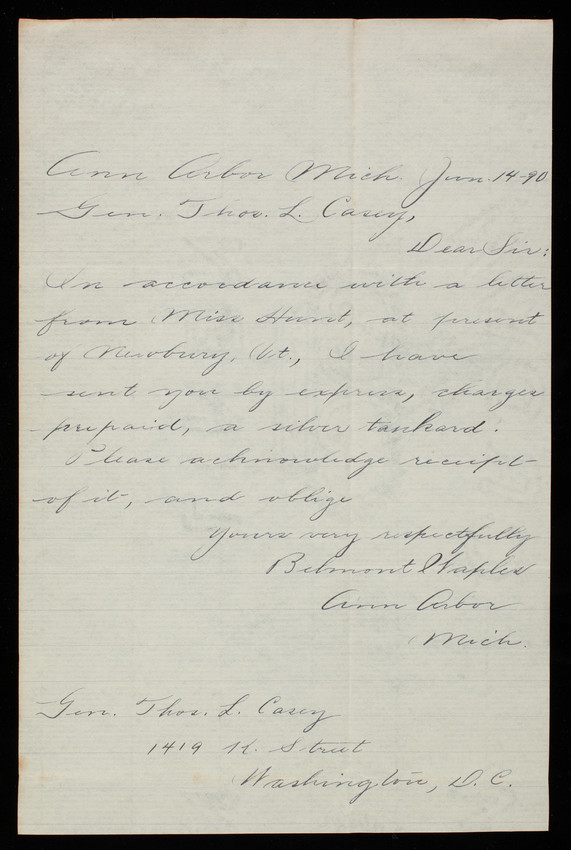 Ann Arbor Mich. Jun. 14-90
Gen. Thos. L. Casey,
Dear Sir:
In accordance with a letter
from Miss Hunt, at present
of Newbury, Vt., I have
sent you by express, charges
prepaid, a silver tankard.
Please acknowledge receipt
of it, and oblige
Yours very respectfully
Belmont Waples
Ann Arbor
Mich.
Gen. Thos. L. Casey
1419 K. Street
Washington, D.C.